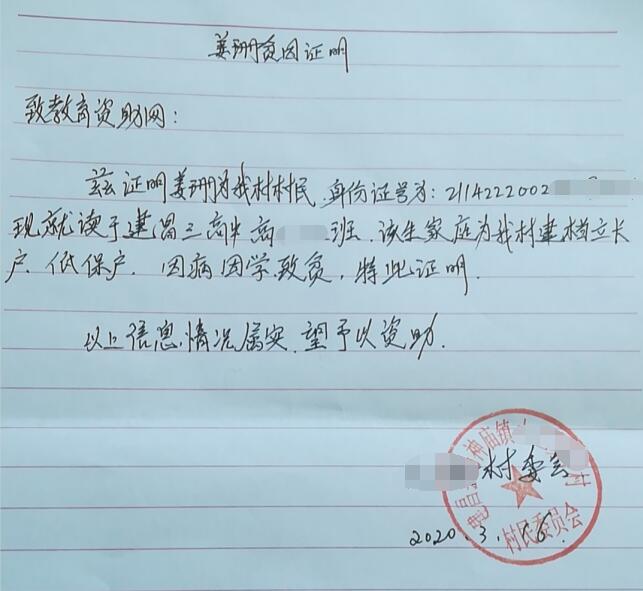 姜珊贫困证明
致教育资助网：
兹证明姜珊为我村村民,身份证号为：2114222002
现就读于建昌三高中高 班.该生家庭为我村建档立长
户.低保户.因病因学致贫,特此证明.
以上信息情况属实.望予以资助.
村委会
2020.3.
神庙镇 村
村民委员会